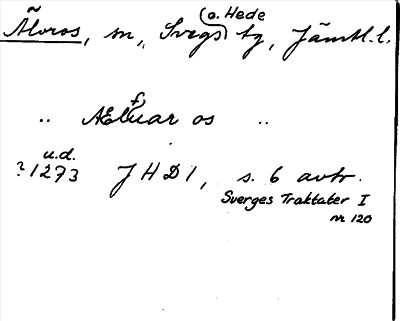 (o. Hede
Älvros, m, Svegs) tg, Jämtl. l.
" Ælfuar os "
u.d.
? 1273 JHD I, s. 6 avtr.
Sverges Traktater I
nr 120